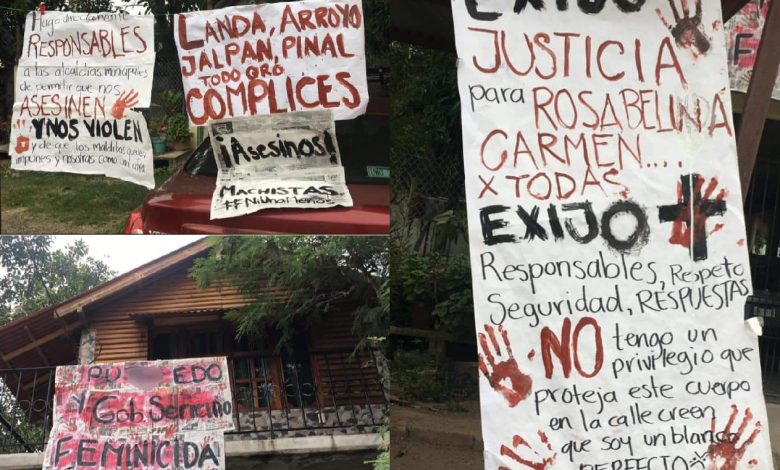 Hago directamente
RESPONSABLES
a las alcaldías municipales
de permitir que nos
ASESINEN
Y NOS VIOLEN
y de que los malditos queden
impunes y nosotras como un
LANDA, ARROYO
JALPAN, PINAL
TODO QRÓ
COMPLICES
¡Asesinos!
MACHISTAS
#NiUnaMenos
PU EDO
Y Gob. Serrano
FEMINICIDA
EXIJO
JUSTICIA
para ROSA BELINDA
CARMEN....
X TODAS
EXIJO
Responsables, Respeto
Seguridad, RESPUESTAS
NO tengo un
privilegio que
proteja este cuerpo
en la calle creen
que soy un blanco
PERFECTO